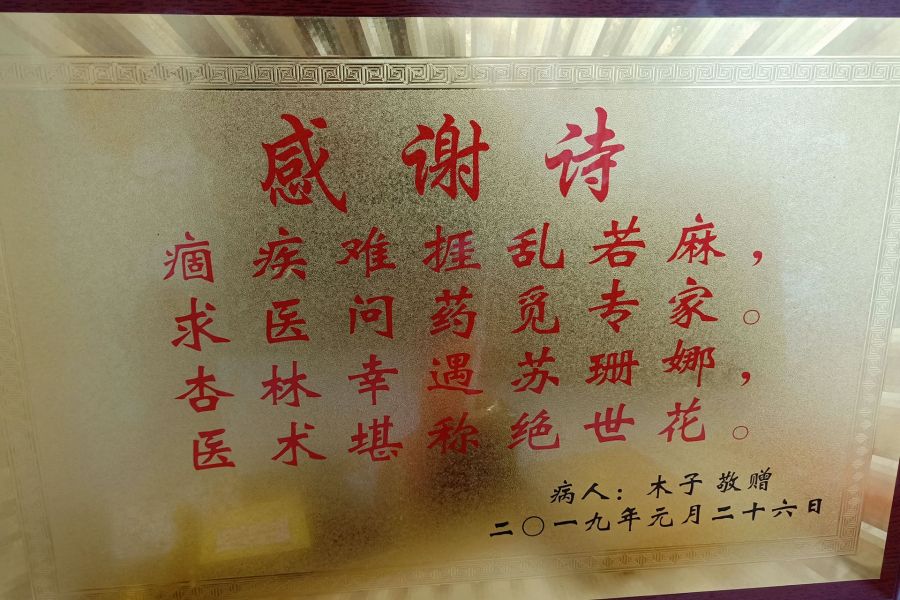 感谢诗
痼疾难捱乱若麻，
求医问药觅专家。
杏林幸遇苏珊娜，
医术堪称绝世花。
病人：木子 敬赠
二〇一九年元月二十六日